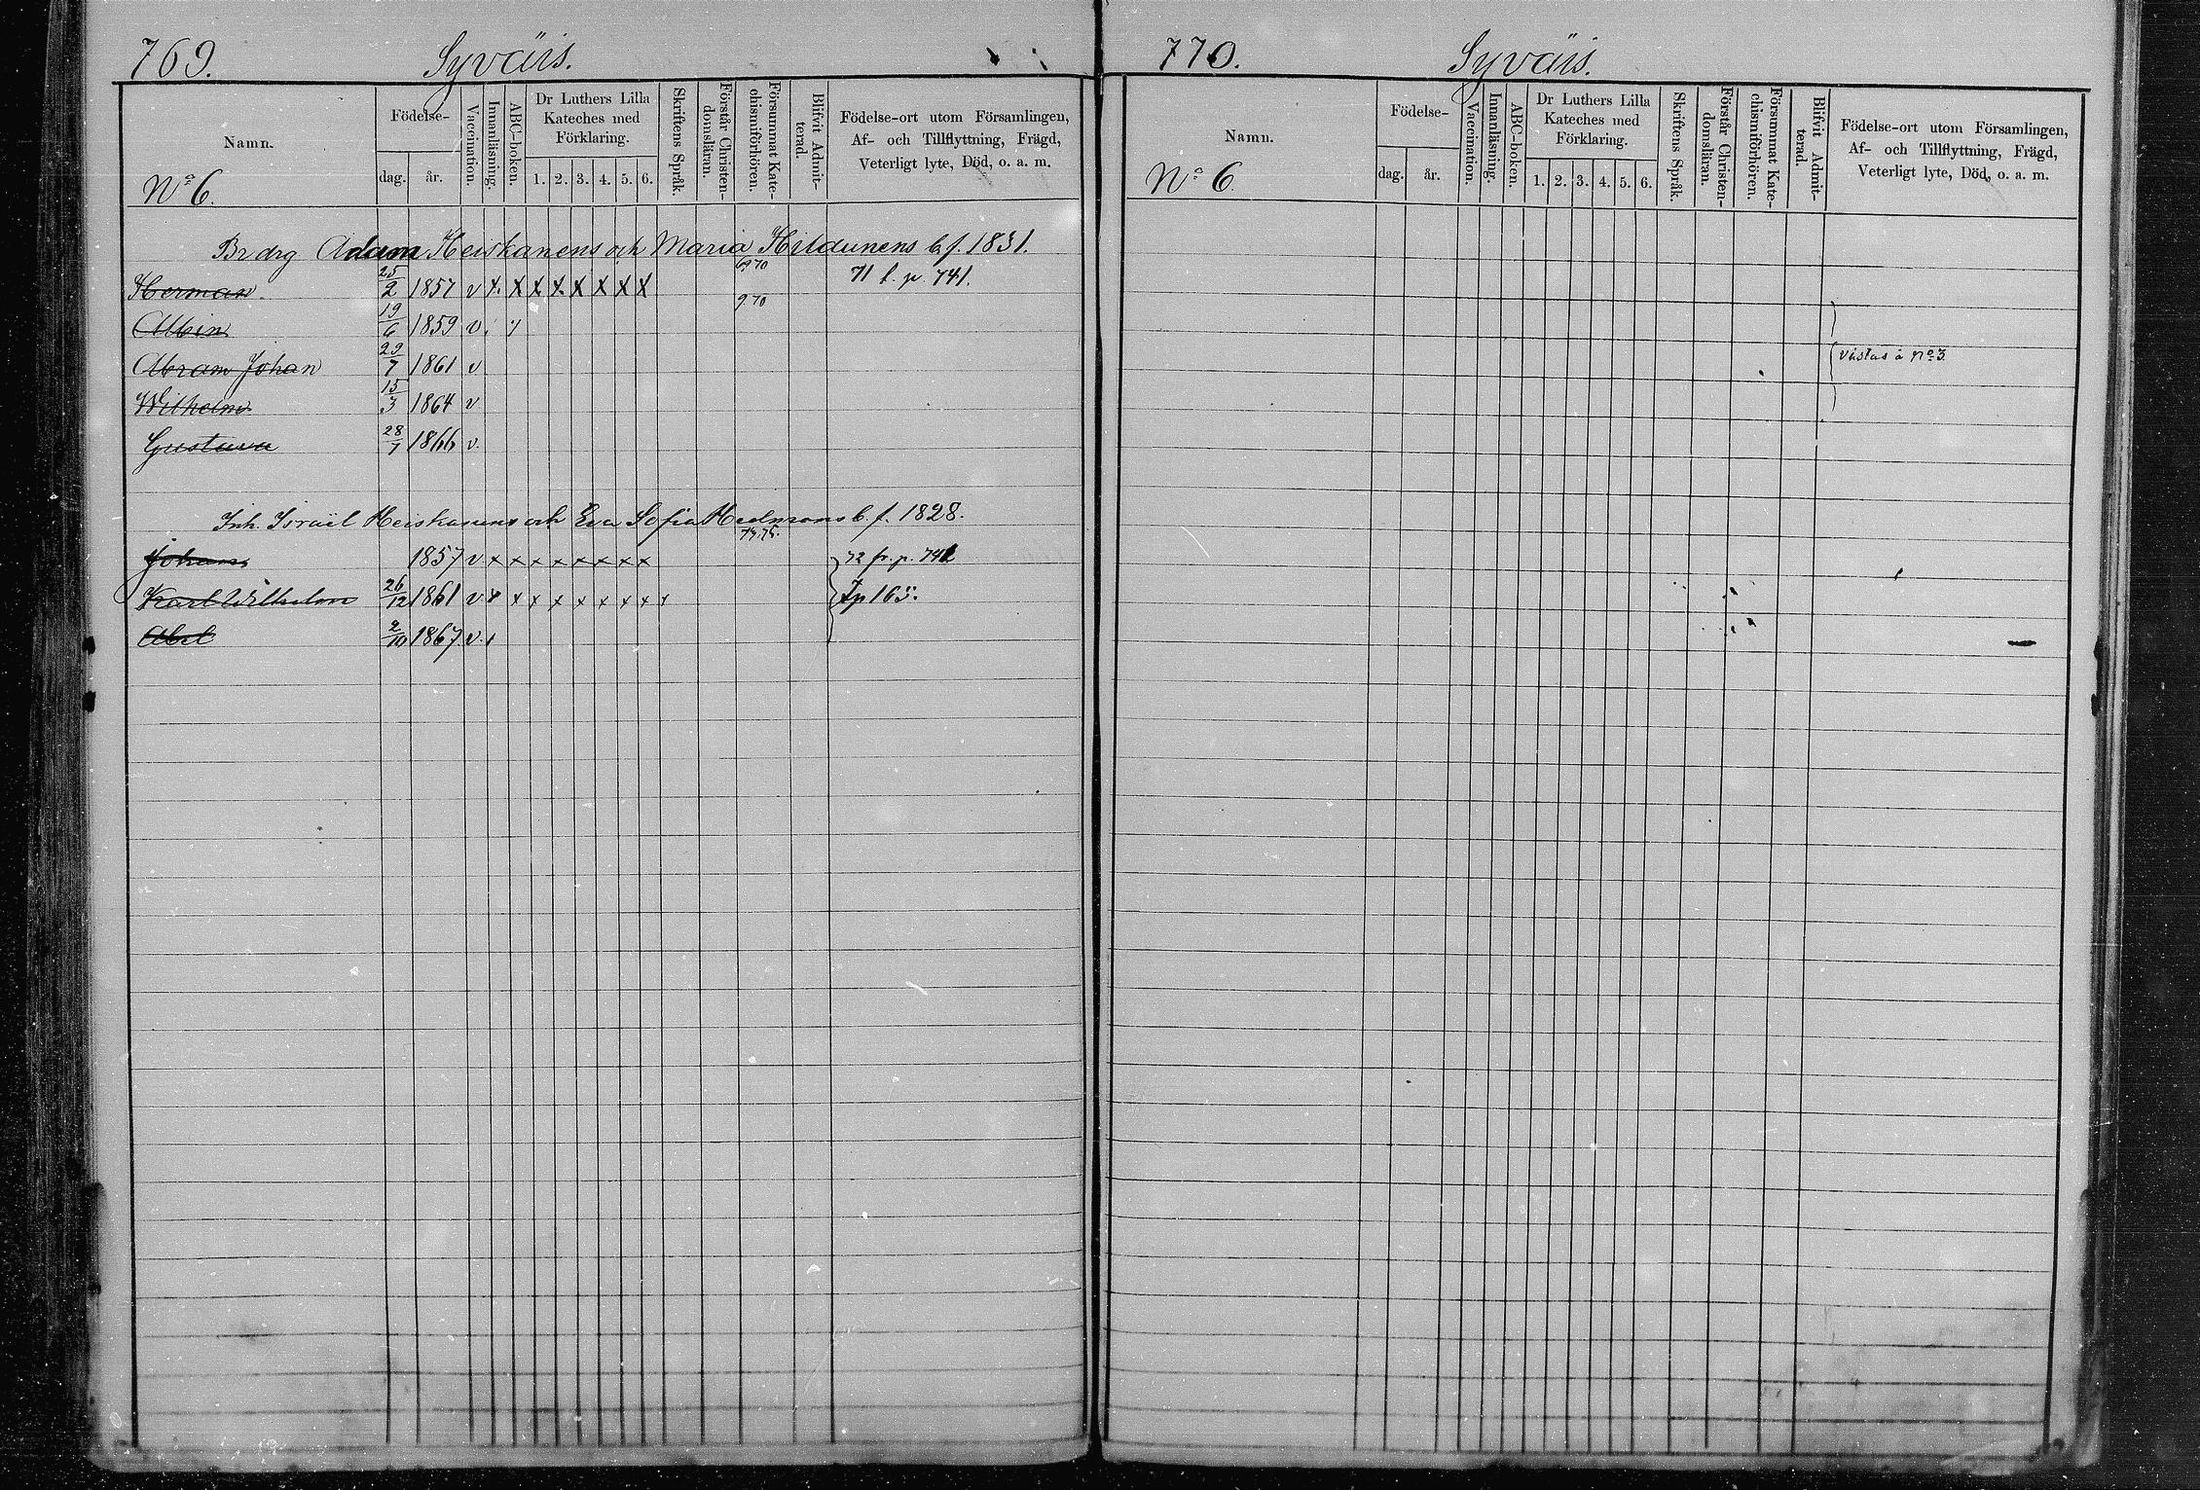 769. Syväis.
Namn.
Födelse-
dag.
år.
Vaccination.
Innanläsning.
ABC-boken.
Dr Luthers Lilla
Kateches med
Förklaring.
1. 2. 3. 4. 5. 6.
Skriftens Språk.
Förstår Christen-
domsläran.
Försummat Kate-
chismiförhören.
Blifvit Admit-
terad.
Födelse-ort utom Församlingen,
Af- och Tillflyttning, Frägd,
Veterligt lyte, Död, o. a. m.
No 6.
Br drg Adam Heiskanens och Maria Hildunens b f. 1831.
Herman. 25/2 1857 v x x x x x x x x 69 70 71 f. p 741.
Albin 19/6 1859 v 9 70
Abram Johan 29/7 1861 v
Wilhelm 15/3 1864 v
Gustava 28/7 1866 v.
Inh. Israël Heiskanens och Eva Sofia Hedmans b. f. 1828.
Johan 1857 v x x x x x x x x 74.75. 72 fr. p. 741
Karl Wilhelm 26/12 1861 v x x x x x x x x x p 165.
Abel 2/10 1867 v.
770. Syväis.
Namn.
Födelse-
dag.
år.
Vaccination.
Innanläsning.
ABC-boken.
Dr Luthers Lilla
Kateches med
Förklaring.
1. 2. 3. 4. 5. 6.
Skriftens Språk.
Förstår Christen-
domsläran.
Försummat Kate-
chismiförhören.
Blifvit Admit-
terad.
Födelse-ort utom Församlingen,
Af- och Tillflyttning, Frägd,
Veterligt lyte, Död, o. a. m.
No 6.
vistas å No 3